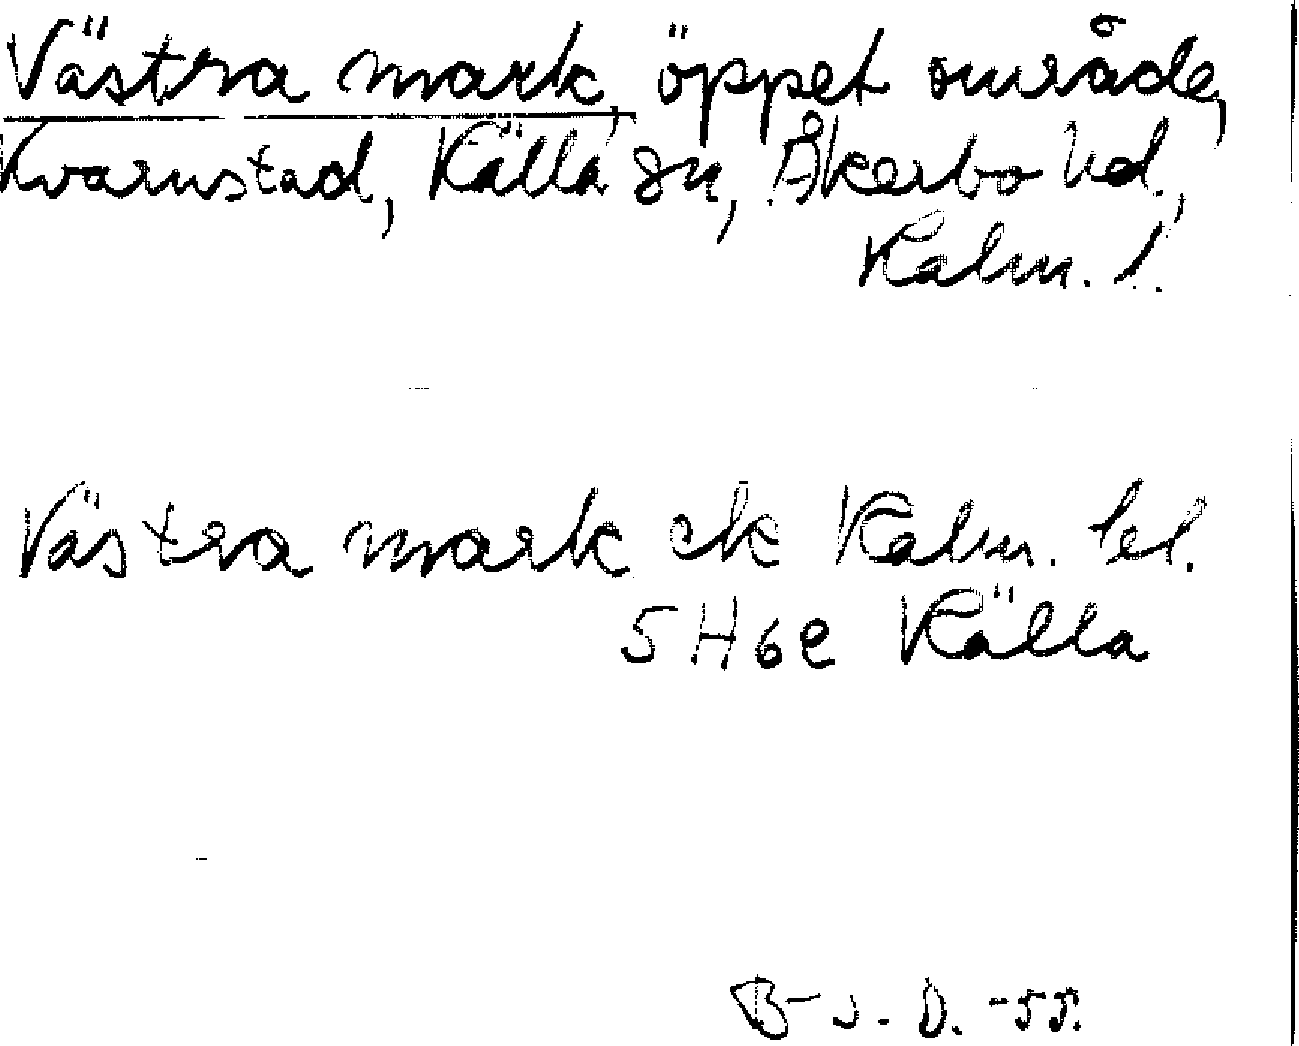 Västra mark, öppet område,
Kvarnstad, Källa sn, Åkerbo hd.,
Kalm. l.
Västra mark ek Kalm. lel.
5H6e Källa
B-J. D. -55.